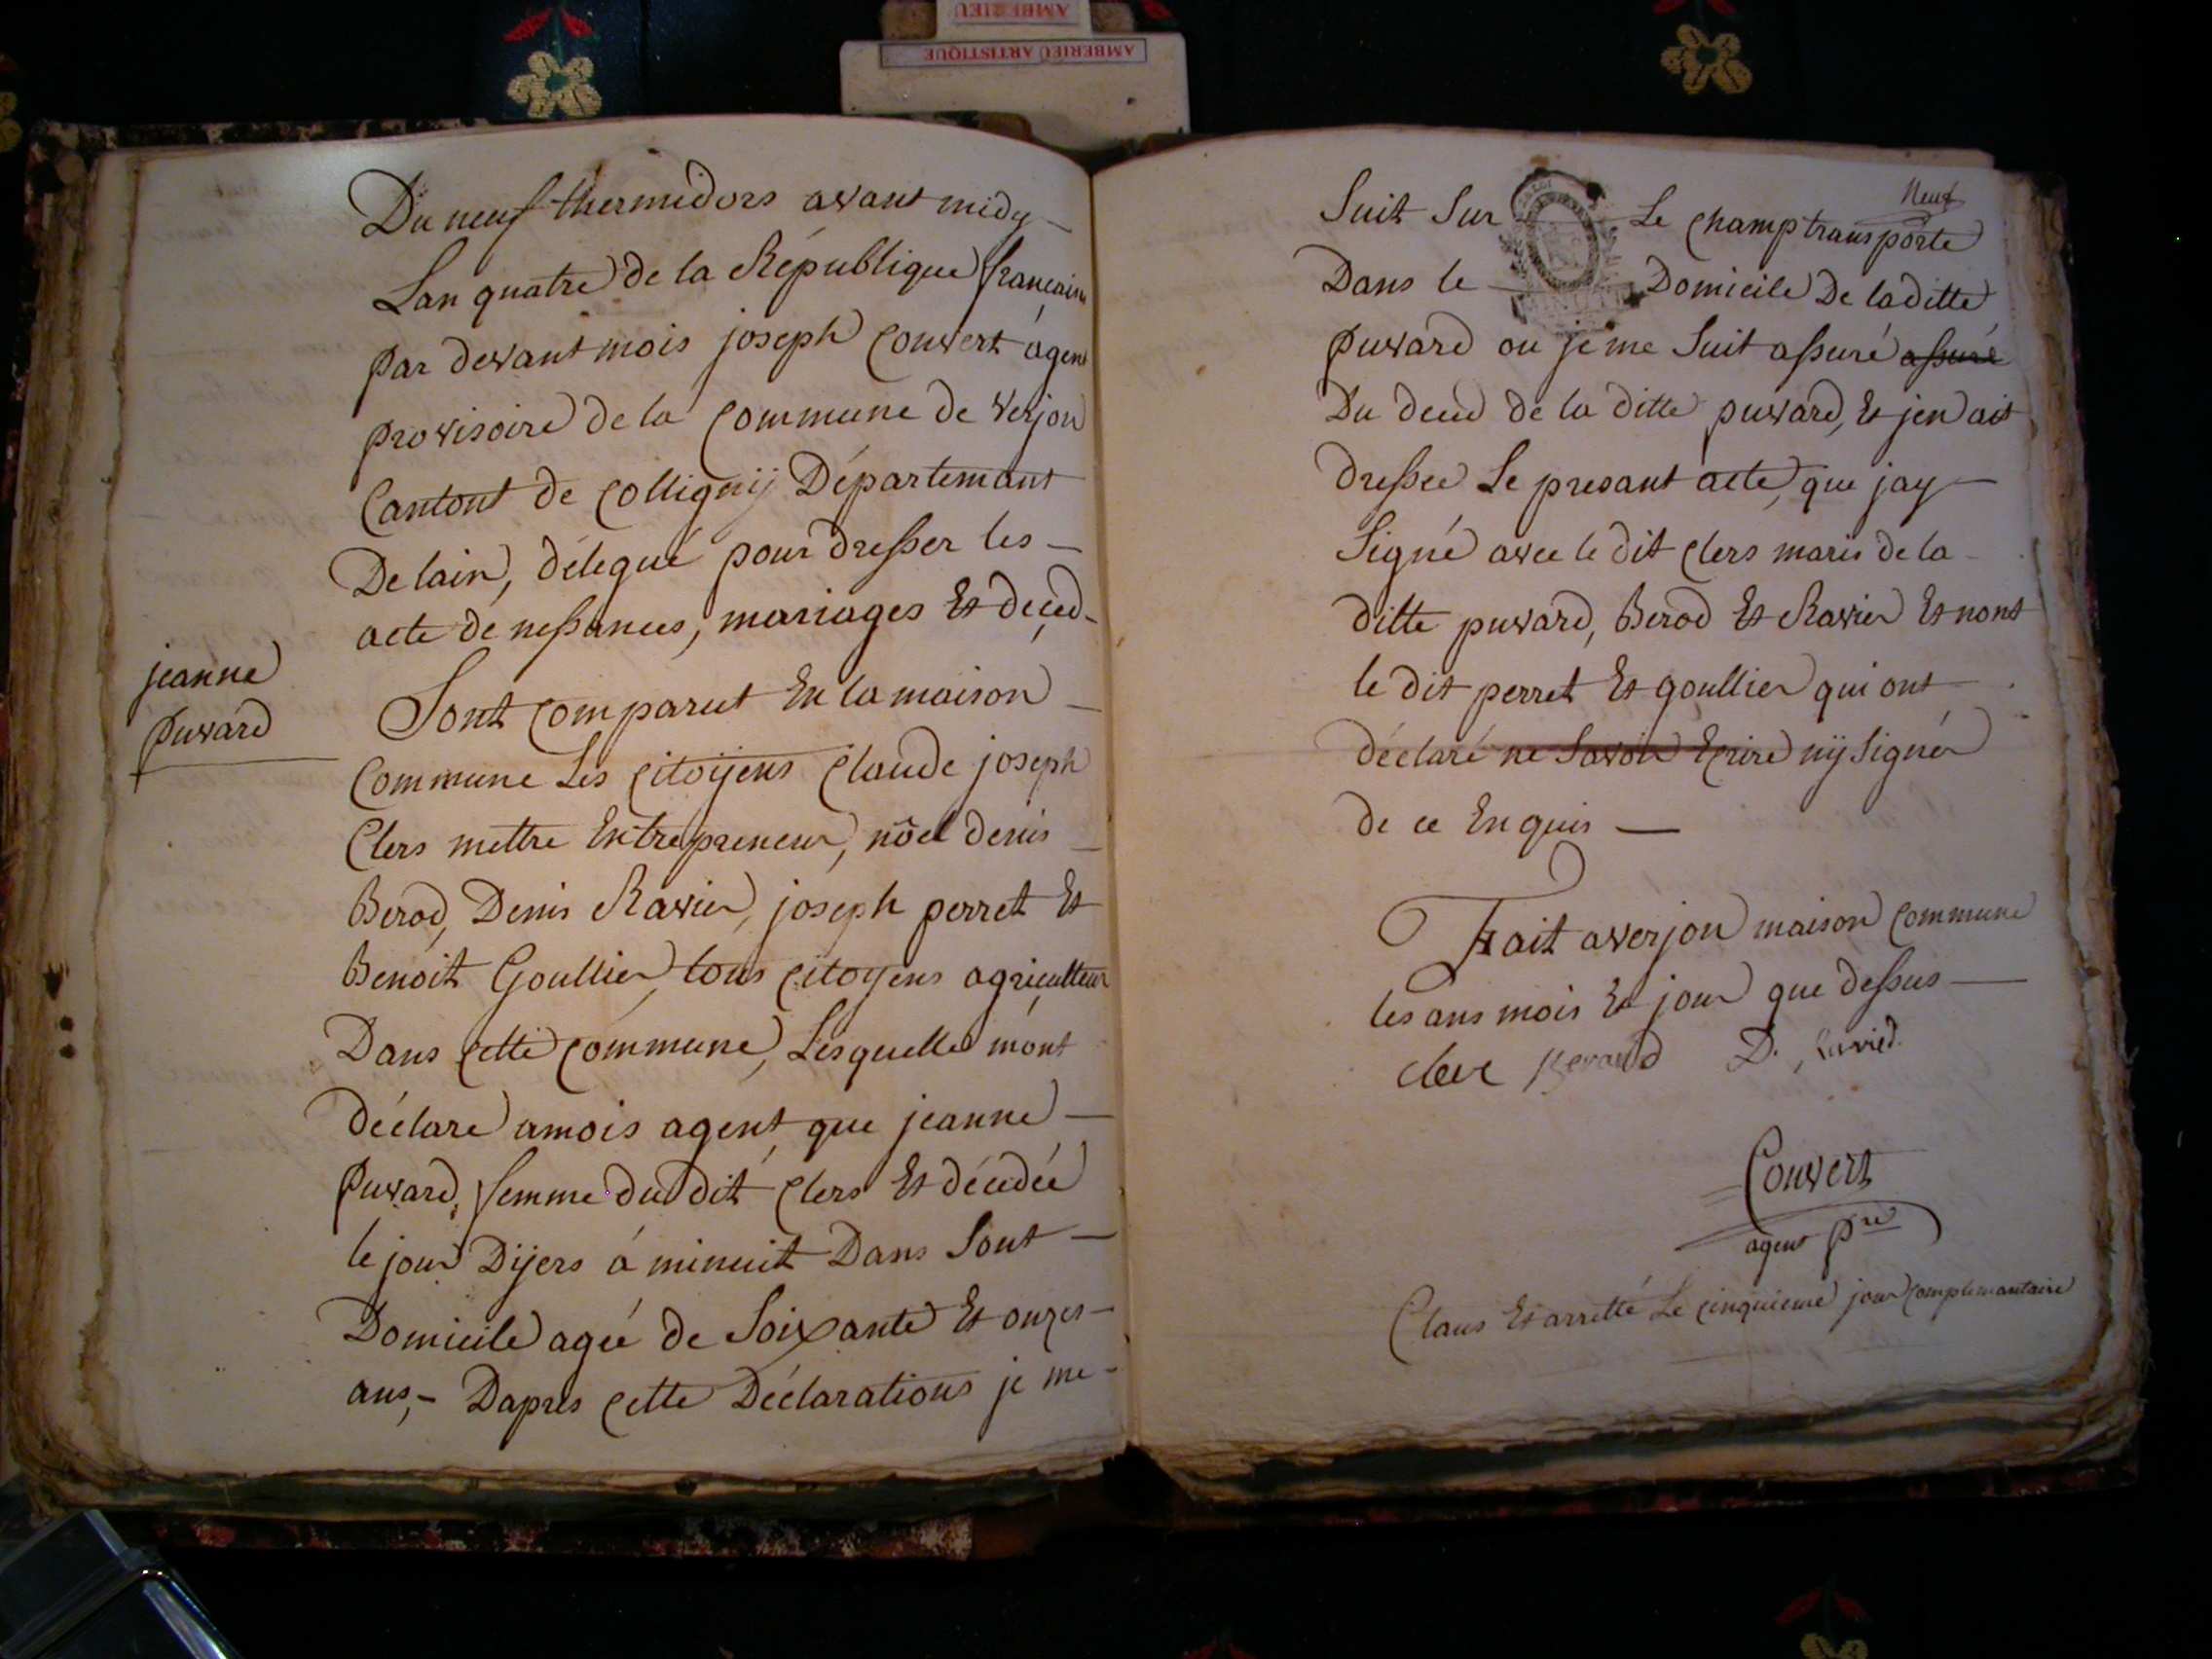 AMBERIEU
AMBERIEU ARTISTIQUE
Du neuf thermidors avant midy
Lan quatre de la République française
par devant mois joseph Convert agent
provisoire de la Commune de verjon
Cantont de Collignij Département
Delain, délegué pour dresser les
acte de nessances, mariages Et deced
jeanne
puvard
Sont Comparut En la maison
Commune Les Citoijens Claude joseph
Clers mettre Entrepreneur, nôel denis
Berod, Denis Ravier, joseph perret Et
Benoit Goullier, tous Citoyens agriculteur
Dans Cette Commune, Lesquelles mont
déclare amois agent que jeanne
puvard, femme du dit Clers Et décédée
le jour Dijers á minuit Dans Sont
Domicile agée de Soixante Et onzes
ans, - Dapres Cette Déclarations je me
Neuf
Suit Sur Le Champ transporte
Dans le Domicile De la ditte
puvard ou je me Suit assuré assuré
Du deced de la ditte puvard, Et jen ait
dressee Le presant acte, que jay
Signé avec le dit Clers maris de la
ditte puvard, Berod Et Ravier Et nont
le dit perret Et goullier qui ont
déclaré ne Savoir Ecrire nij Signér
de ce Enquis
Fait a verjon maison Commune
les ans mois Et jour que dessus
clerc Beraud D. Ravied
Convert
agent pre
Claus Et arretté Le Cinquieme jour Complemantaire